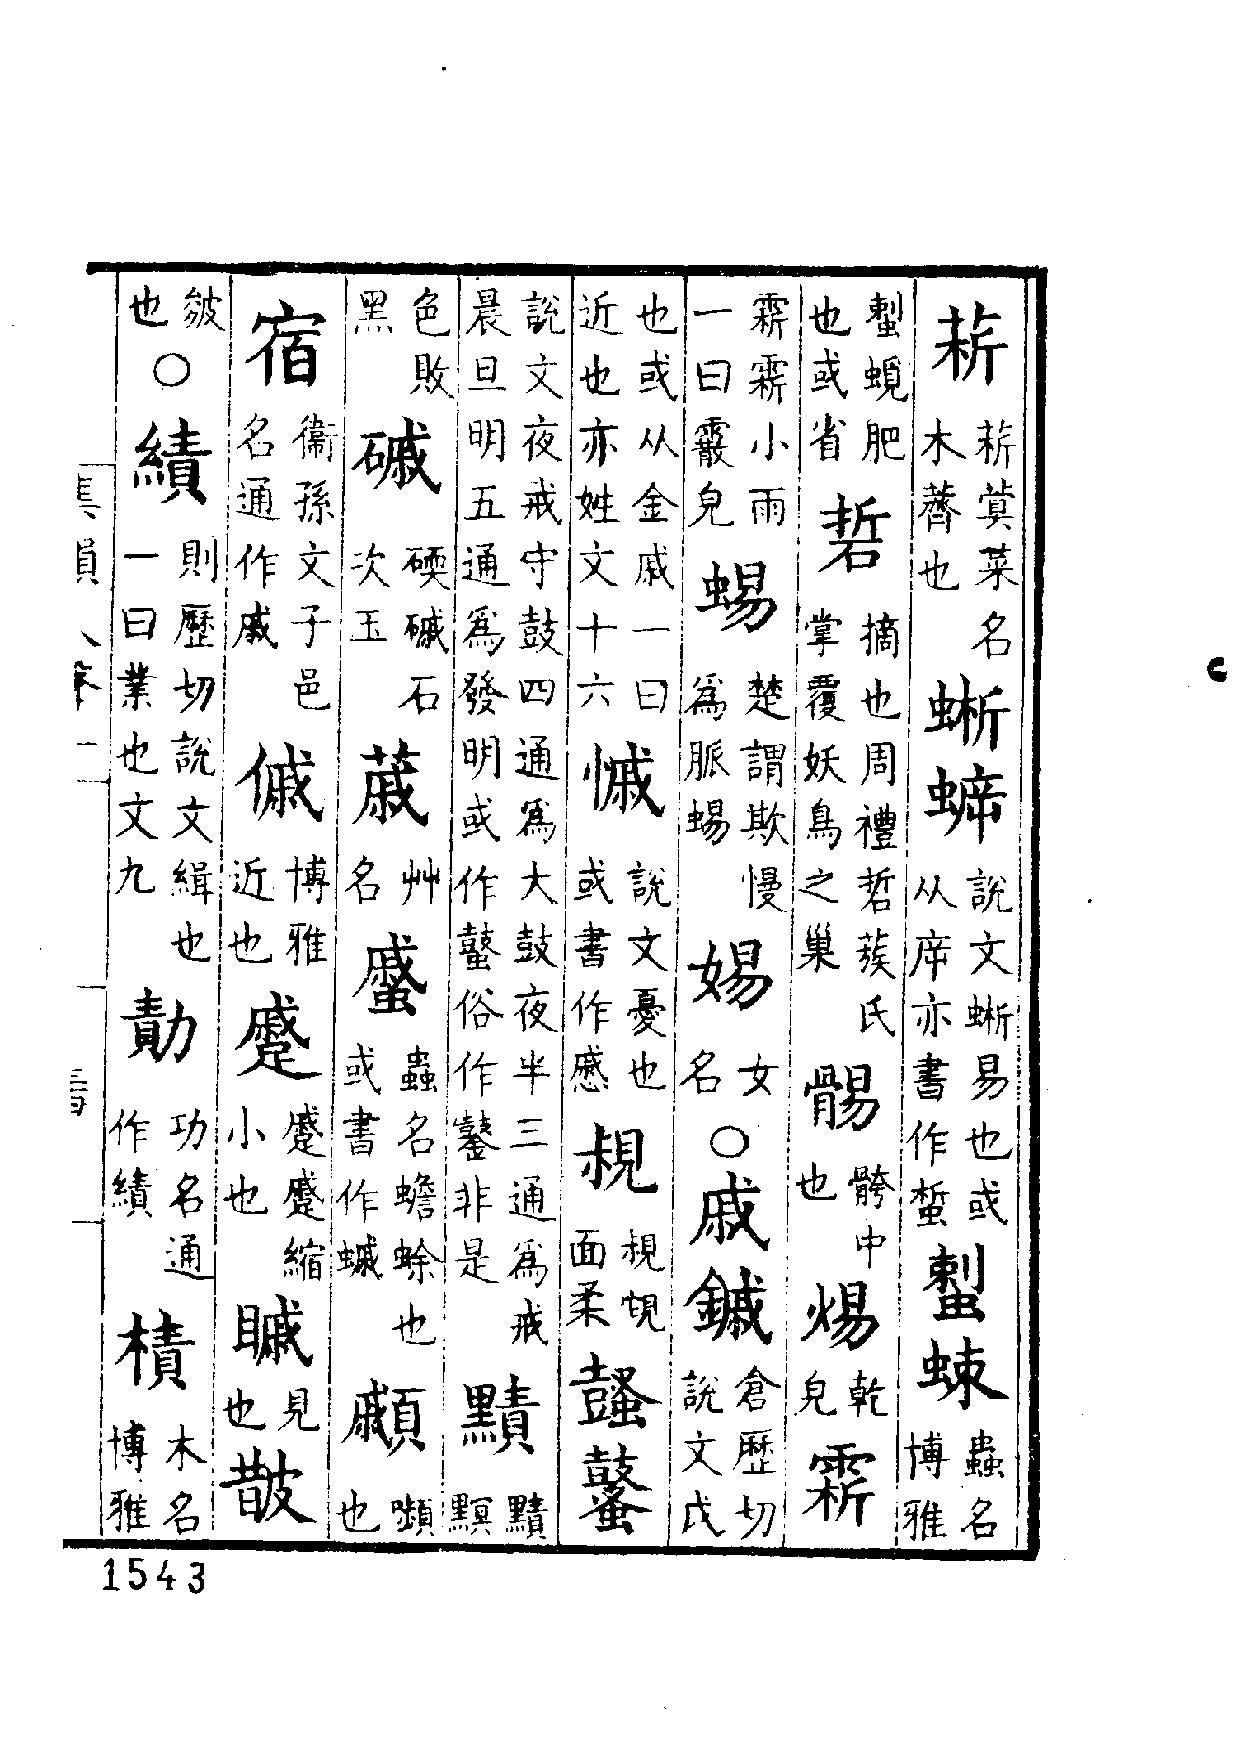 菥菥蓂菜名木薺也蜥䗩說文蜥易也或从庌亦書作蜤䘿蝀蟲名博雅
䘿蜆肥也或省硩摘也周禮硩蔟氏掌覆妖鳥之巢䯜骻中也焬乾皃霹
霹霹小雨一曰霰皃蜴楚謂欺慢爲脈蜴婸女名○戚鏚倉歷切說文戉
也或从金戚一曰近也亦姓文十六慽說文憂也或書作慼䙷䙷䙿面柔鼜鼞
說文夜戒守鼓四通爲大鼓夜半三通爲戒晨旦明五通爲發明或作鼜俗作鼞非是黷黷䵋
色敗黑磩碝磩石次玉蒧艸名䗩蟲名蟾蜍也或書作䗩顣嚬也
宿衞孫文子邑名通作戚傶博雅近也蹙蹙蹙縮小也䁓見也皵
皴也○績則歷切說文緝也一曰業也文九勣功名通作績樍木名博雅
集韻
1543